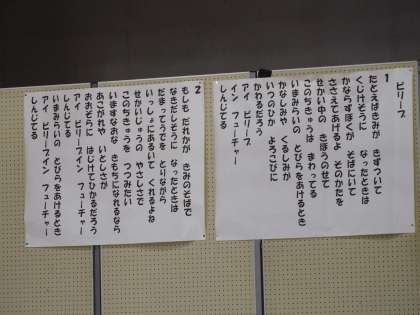 ビリーブ
1
たとえばきみが きずついて
くじけそうに なったときは
かならずぼくが そばにいて
ささえてあげるよ そのかたを
せかい中の きぼうのせて
このちきゅうは まわってる
いまみらいの とびらをあけるとき
かなしみや くるしみが
いつのひか よろこびに
かわるだろう
アイ ビリーブ
イン フューチャー
しんじてる
2
もしも だれかが きみのそばで
なきだしそうに なったときは
だまってうでを とりながら
いっしょにあるいて くれるよね
せかいじゅうの やさしさで
このちきゅうを つつみたい
いますなおな きもちになれるなら
あこがれや いとしさが
おおぞらに はじけてひかるだろう
アイ ビリーブイン フューチャー
しんじてる
いまみらいの とびらをあけるとき
アイ ビリーブイン フューチャー
しんじてる